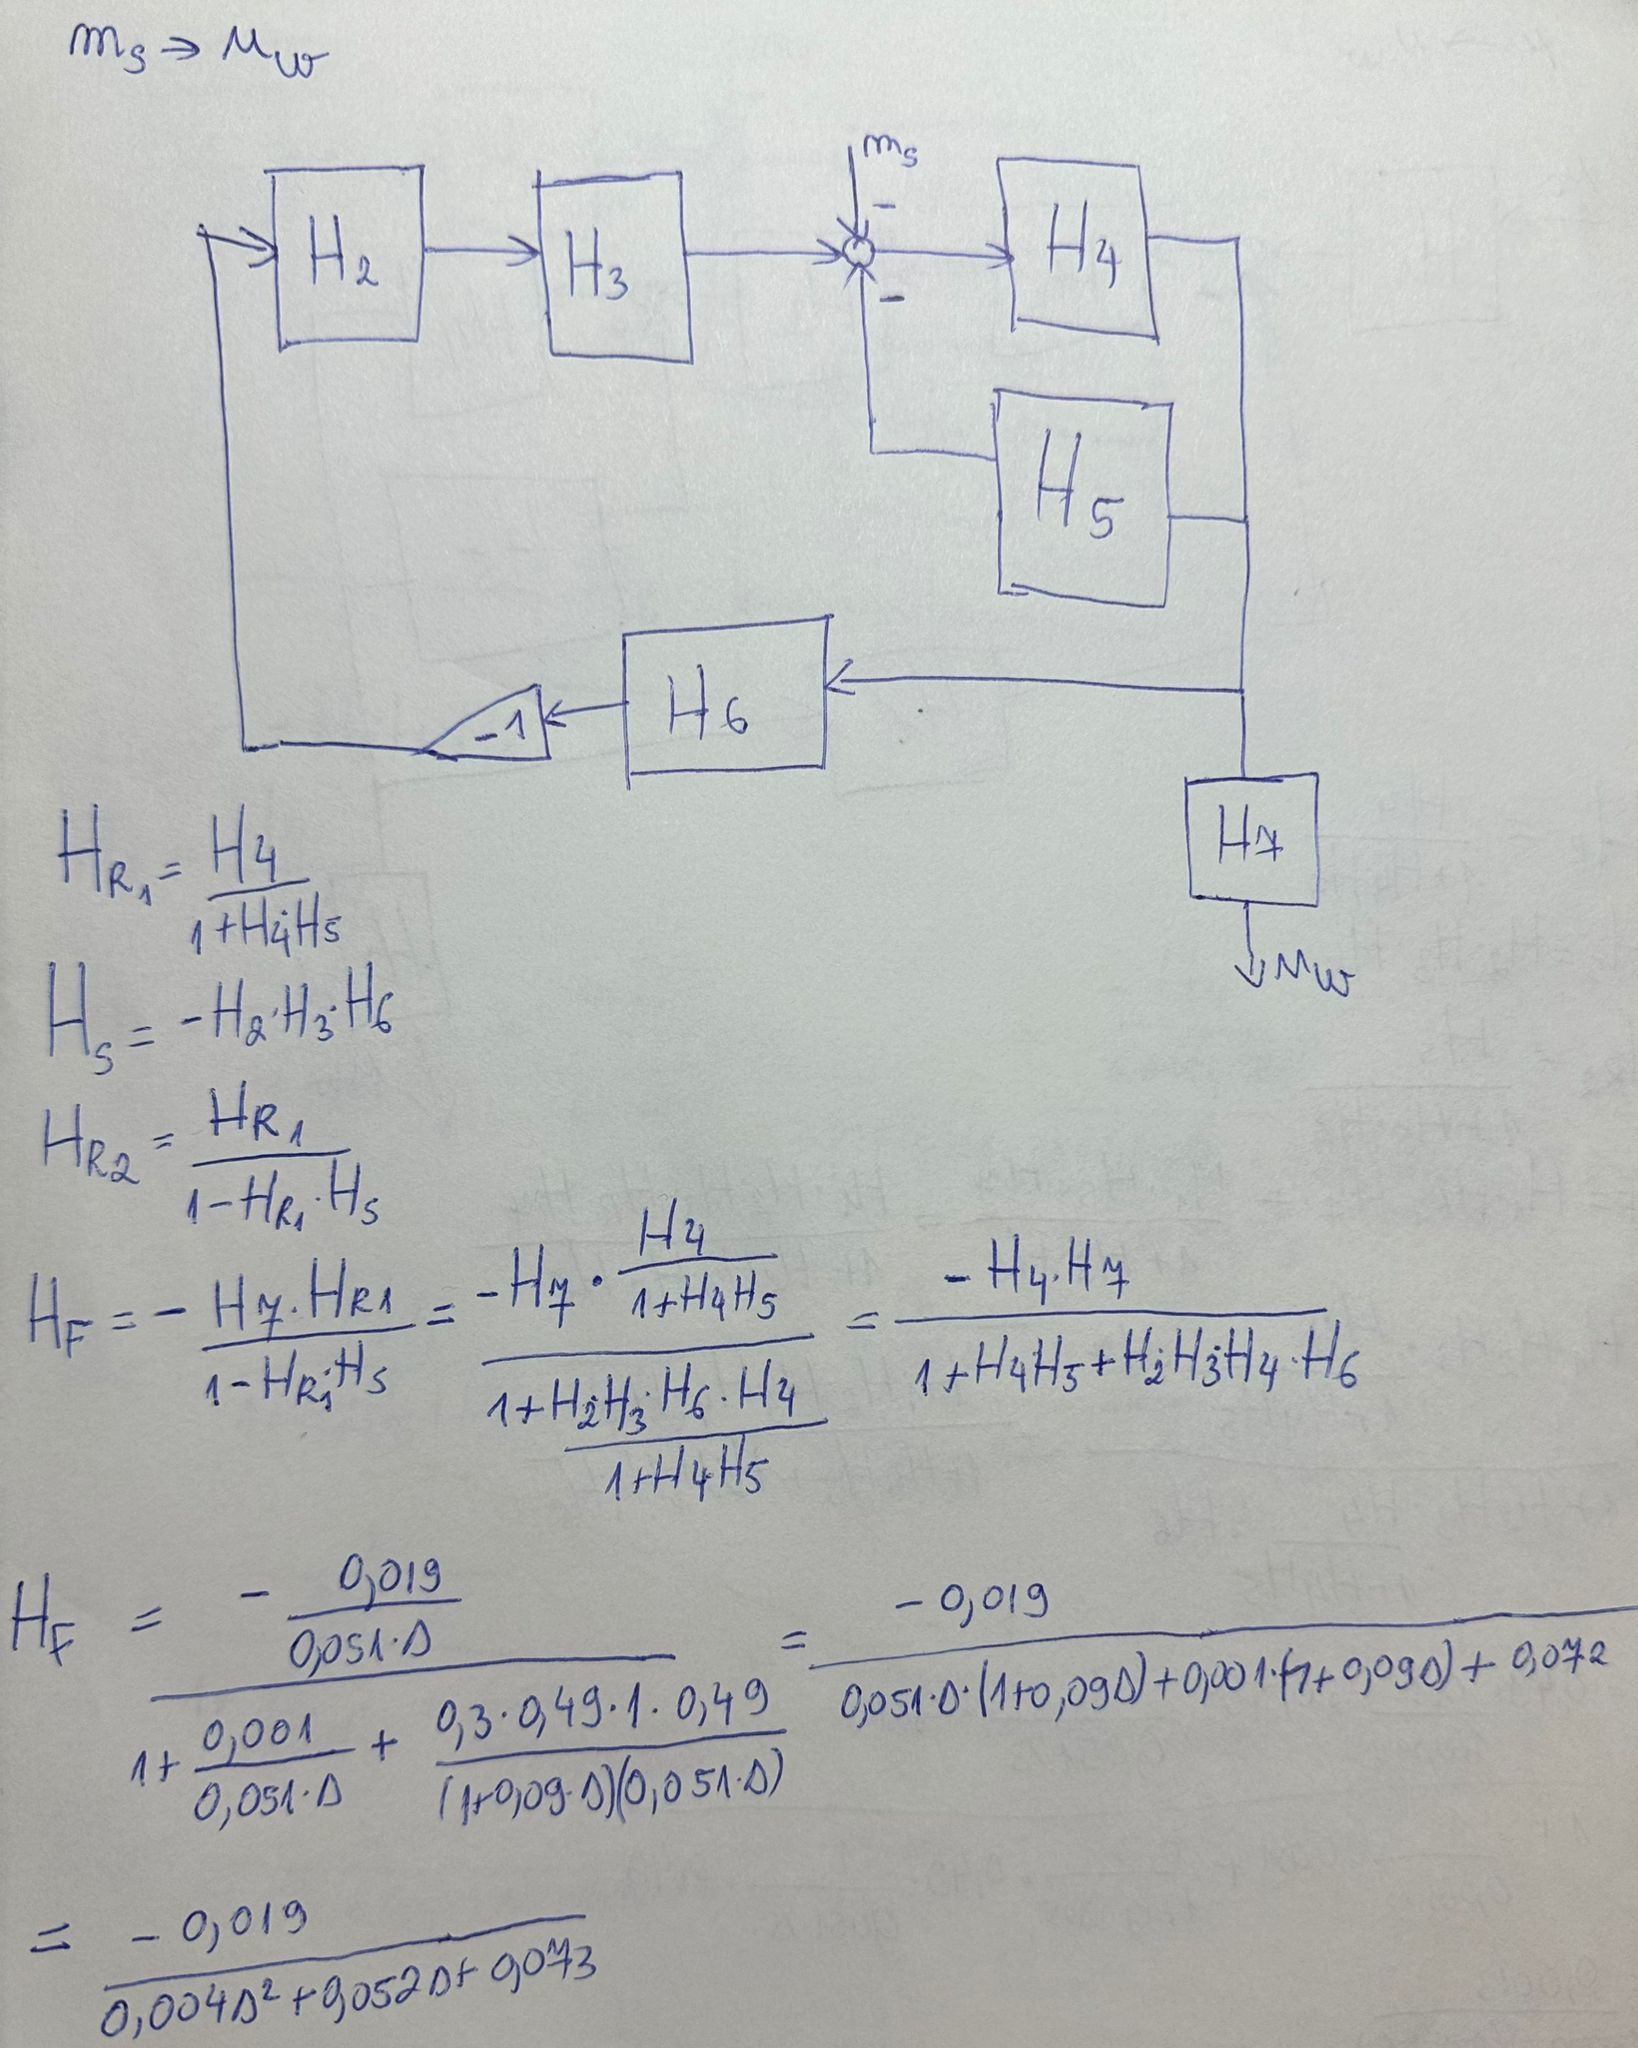 m_s → u_w
m_s
-
H_2
H_3
H_4
-
H_5
H_6
-1
H_7
u_w
H_R1 = H_4 / (1+H_4·H_5)
H_s = -H_2·H_3·H_6
H_R2 = H_R1 / (1-H_R1·H_s)
H_F = - H_7·H_R1 / (1-H_R1·H_s) = (-H_7 · H_4 / (1+H_4H_5)) / (1+ H_2·H_3·H_6·H_4 / (1+H_4H_5)) = -H_4·H_7 / (1+H_4H_5+H_2·H_3·H_4·H_6)
H_F = (- 0,019 / (0,051·s)) / (1+ 0,001 / (0,051·s) + 0,3·0,49·1·0,49 / ((1+0,09·s)(0,051·s))) = -0,019 / (0,051·s·(1+0,09s)+0,001·(1+0,09s)+0,072)
= -0,019 / (0,004s²+0,052s+0,073)